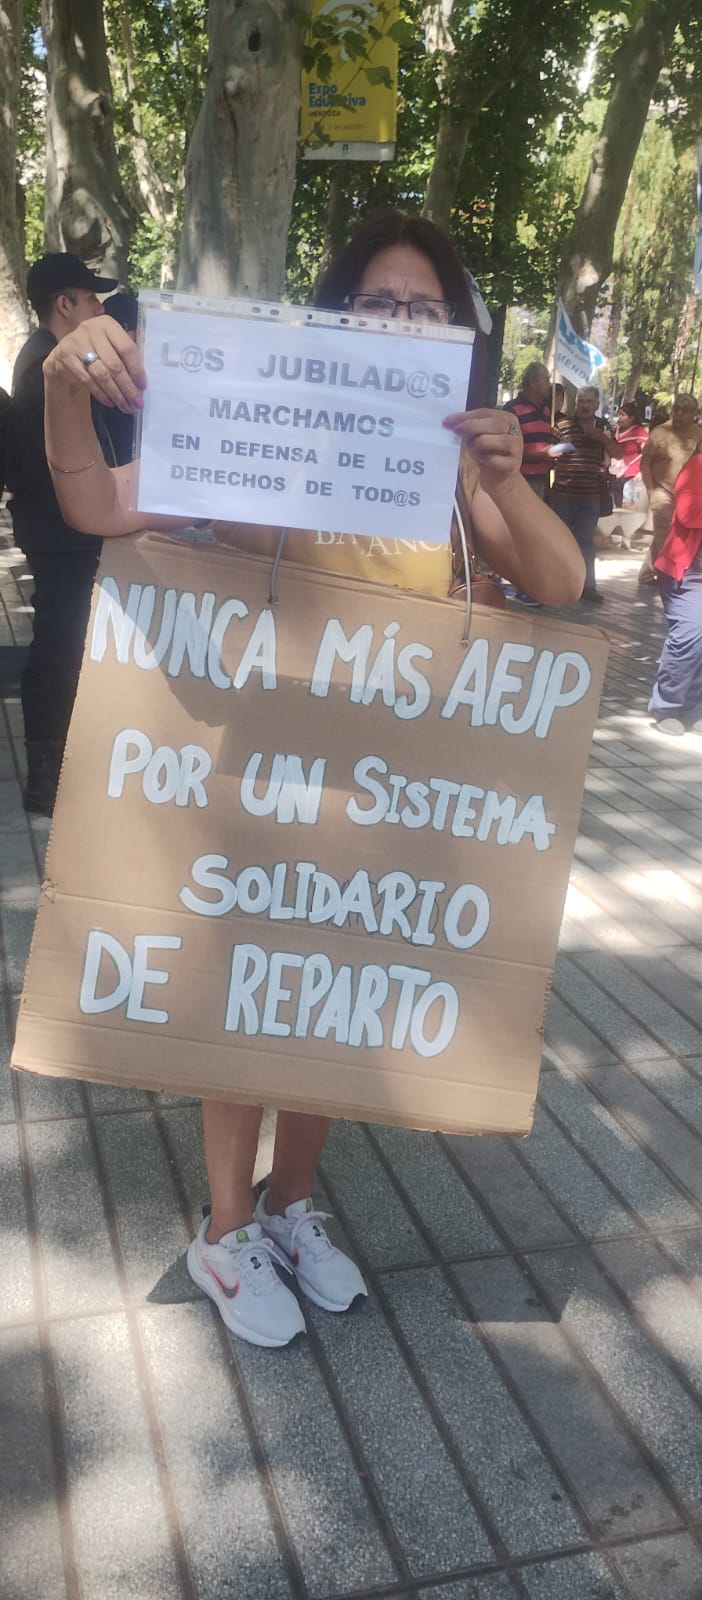 Expo
Educativa
MENDOZA
L@S JUBILAD@S
MARCHAMOS
EN DEFENSA DE LOS
DERECHOS DE TOD@S
NUNCA MÁS AFJP
POR UN SISTEMA
SOLIDARIO
DE REPARTO